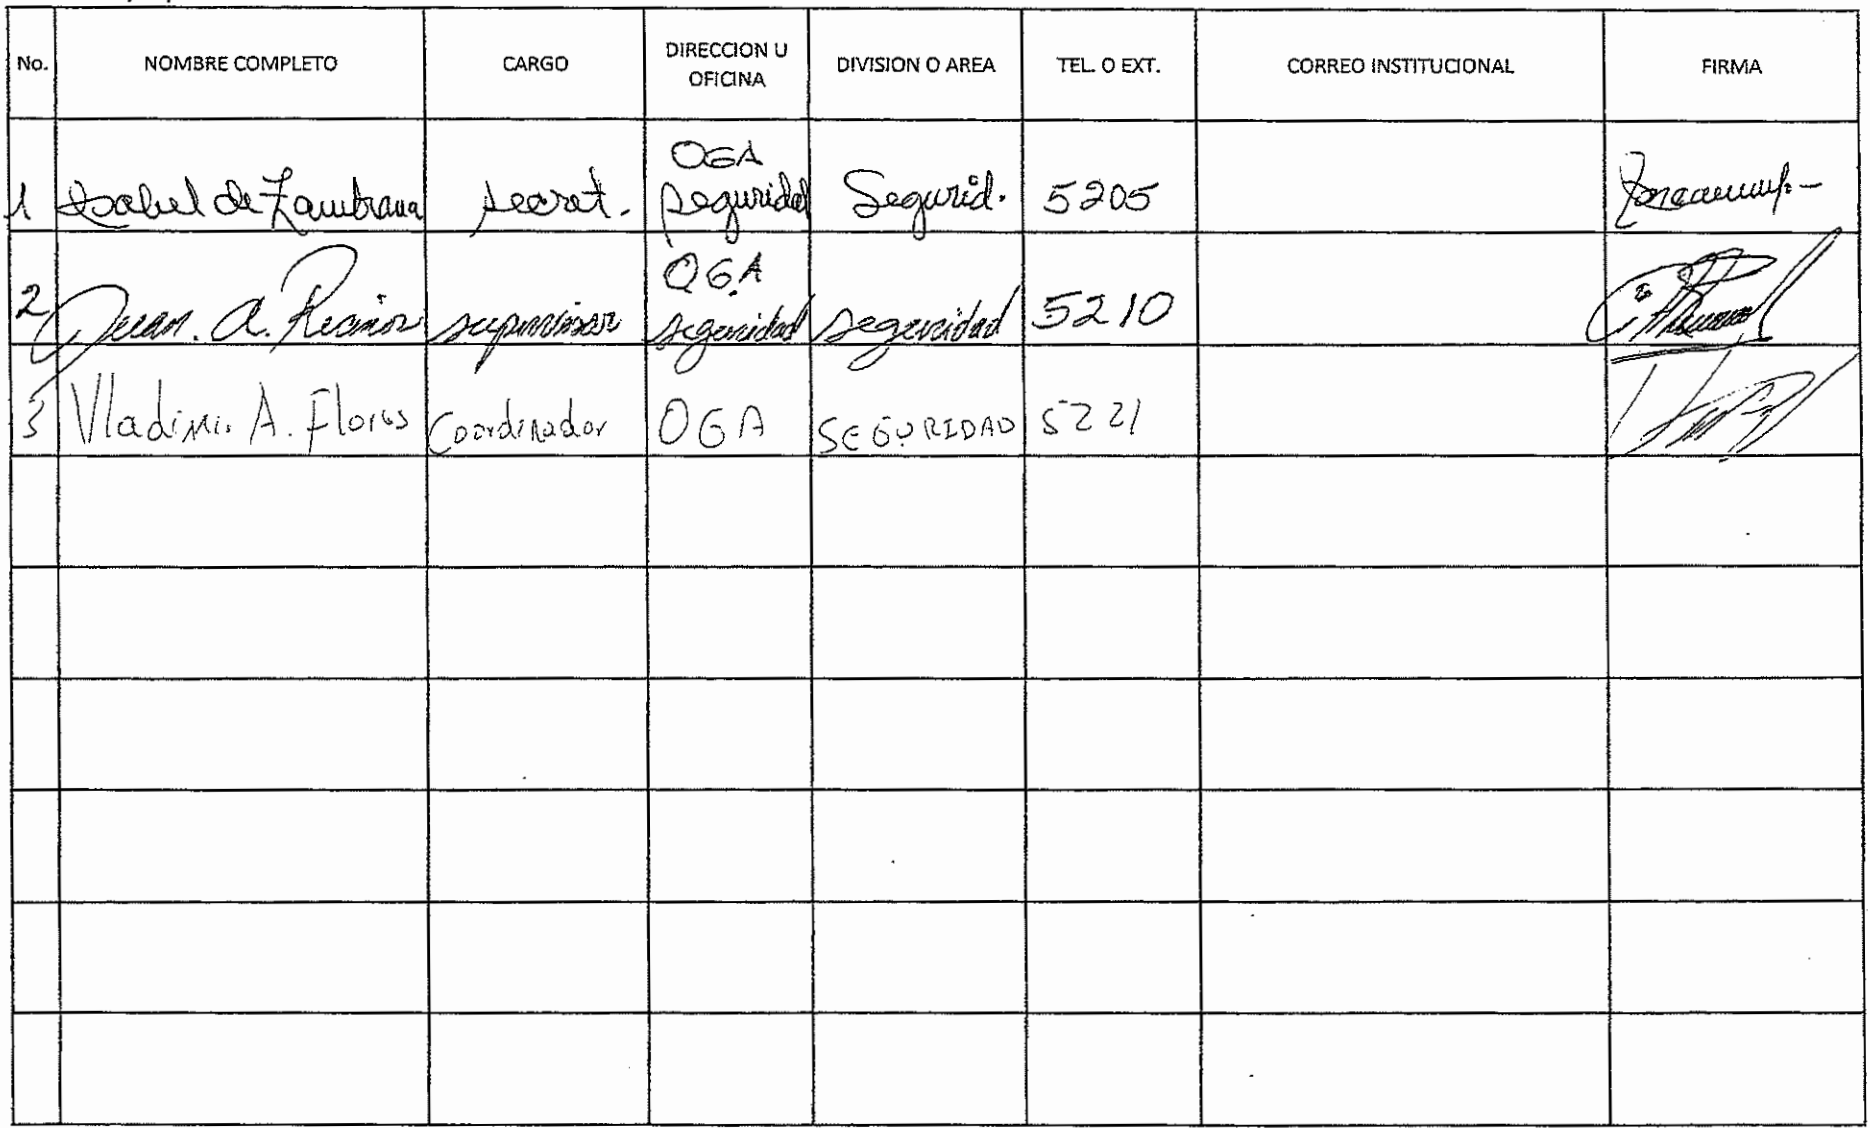 No. NOMBRE COMPLETO CARGO DIRECCION U OFICINA DIVISION O AREA TEL. O EXT. CORREO INSTITUCIONAL FIRMA
1 Isabel de Zambrana secret. OGA seguridad Segurid. 5205
2 Juan. A. Recinos supervisor OGA seguridad seguridad 5210
3 Vladimir A. Flores Coordinador OGA SEGURIDAD 5221